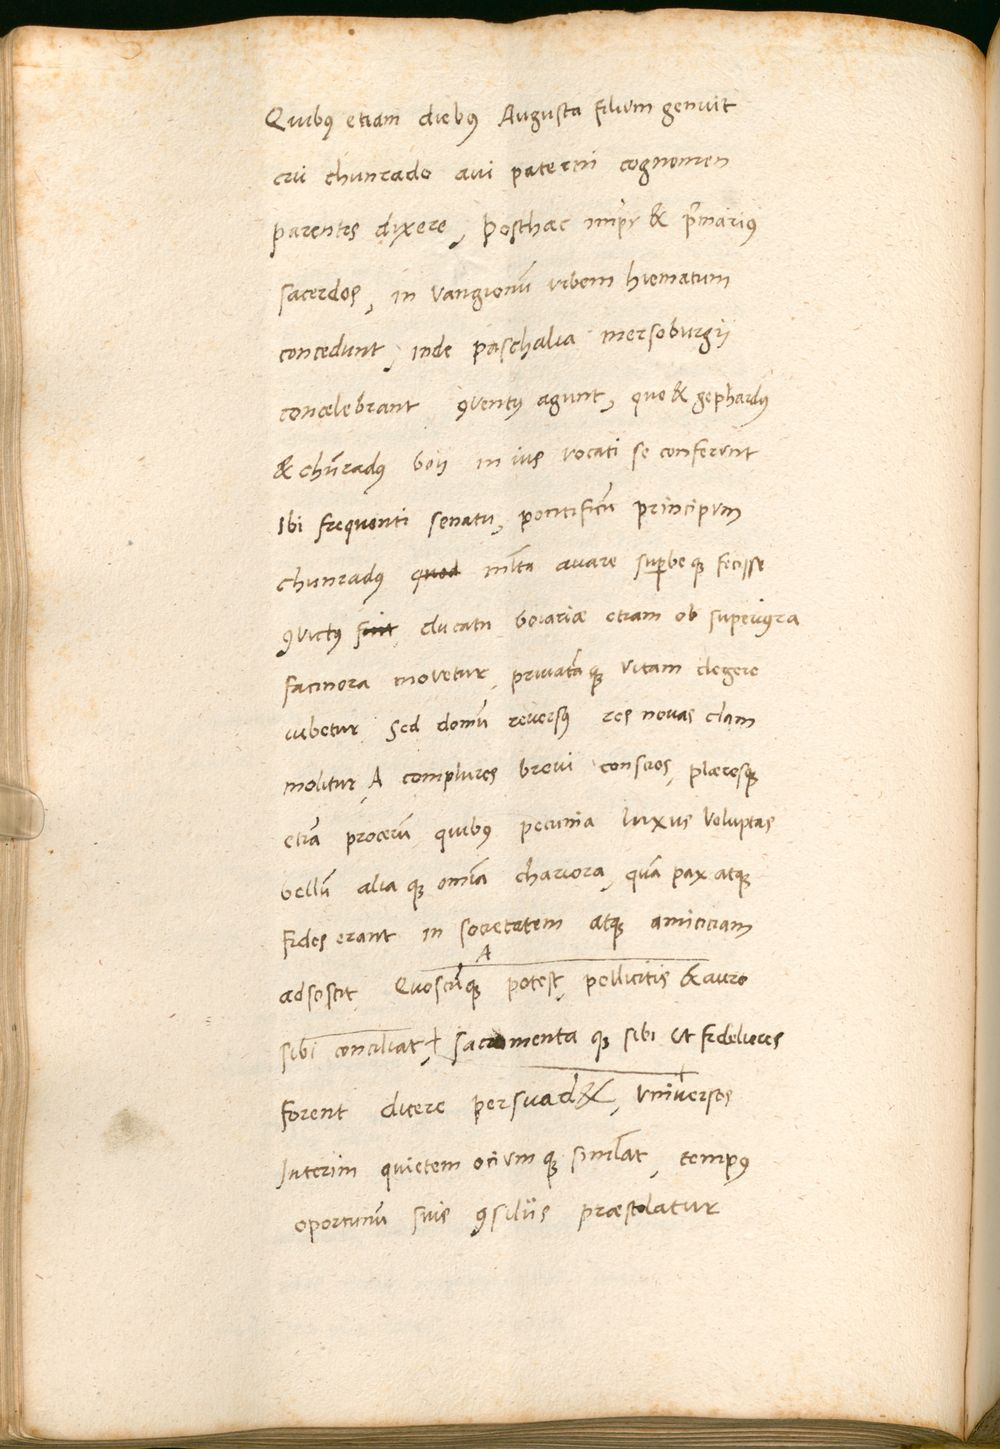 Quibꝰ etiam diebꝰ Augusta filium genuit
cui chunrado aui paterni cognomen
parentes dixere, posthac imp̄r & p̄marius
sacerdos, in vangionū vrbem hiematum
concedunt, inde paschalia mersoburgii
concelebrant ꝯventꝰ agunt, quo & gephardꝰ
& chūradꝰ boii in ius vocati se conferunt
Ibi frequenti senatu, pontificū principum
chunradꝰ quod ml̄ta auare suꝑbe qꝫ fecisse
ꝯuictꝰ sint ducatu boiariæ etiam ob superiora
facinora movetur, priuatā qꝫ vitam degere
iubetur Sed domū reversꝰ res novas clam
molitur, A complures brevi conscios, plæresqꝫ
etiā procerū quibꝰ pecunia luxus voluptas
bellū alia qꝫ omīa chariora, quā pax atqꝫ
fides erant in societatem atqꝫ amicitiam
A
adsciscit Quoscūqꝫ potest, pellicitis & auro
sibi conciliat + sacramenta qꝫ sibi ut fideliores
forent dicere persuad&, universos
Interim quietem ocium qꝫ siml̄at, tempꝰ
oportunū suis ꝯsiliis præstolatur